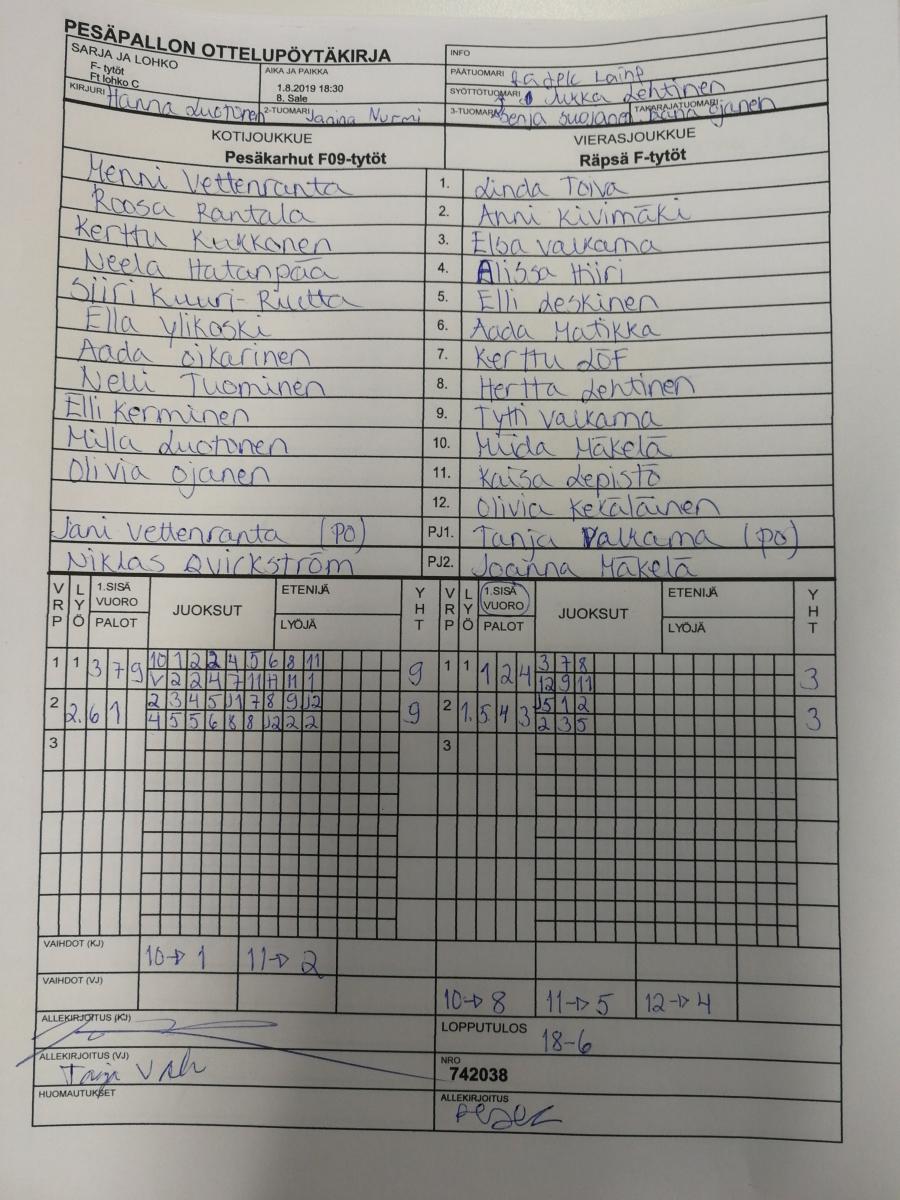 PESÄPALLON OTTELUPÖYTÄKIRJA
SARJA JA LOHKO
F- tytöt
Ft lohko C
AIKA JA PAIKKA
1.8.2019 18:30
8. Sale
INFO
PÄÄTUOMARI
SYÖTTÖTUOMARI Jukka Lehtinen
KIRJURI Hanna Luotonen 2-TUOMARI Janina Nurmi 3-TUOMARI Senja Suojanen TAKARAJATUOMARI Ojanen
KOTIJOUKKUE VIERASJOUKKUE
Pesäkarhut F09-tytöt Räpsä F-tytöt
Henni Vettenranta 1. Linda Toiva
Roosa Rantala 2. Anni Kivimäki
Kerttu Kukkonen 3. Elsa Valkama
Neela Hatanpää 4. Alissa Hiiri
Siiri Kuuri-Riutta 5. Elli Leskinen
Ella Ylikoski 6. Aada Matikka
Aada Oikarinen 7. Kerttu Löf
Nelli Tuominen 8. Hertta Lehtinen
Elli Kerminen 9. Tytti Valkama
Milla Luotonen 10. Miida Mäkelä
Olivia Ojanen 11. Kaisa Lepistö
12. Olivia Kekäläinen
Jani Vettenranta (PO) PJ1. Tanja Valkama (po)
Niklas Qvickström PJ2. Joanna Mäkelä
VRP LYÖ 1.SISÄ VUORO PALOT JUOKSUT ETENIJÄ LYÖJÄ YHT VRP LYÖ 1.SISÄ VUORO PALOT JUOKSUT ETENIJÄ LYÖJÄ YHT
1 1 3 7 9 10 1 2 2 4 5 6 8 11 9 1 1 1 2 4 3 7 8 3
V 2 2 4 7 11 11 11 1 12 9 11
2 2. 6 1 2 3 4 5 J1 7 8 9 J2 9 2 1. 5 4 3 J5 1 2 3
4 5 5 6 8 8 J2 2 2 2 3 5
3 3
VAIHDOT (KJ) 10→1 11→2
VAIHDOT (VJ) 10→8 11→5 12→4
ALLEKIRJOITUS (KJ) LOPPUTULOS 18-6
ALLEKIRJOITUS (VJ) NRO
742038
HUOMAUTUKSET ALLEKIRJOITUS